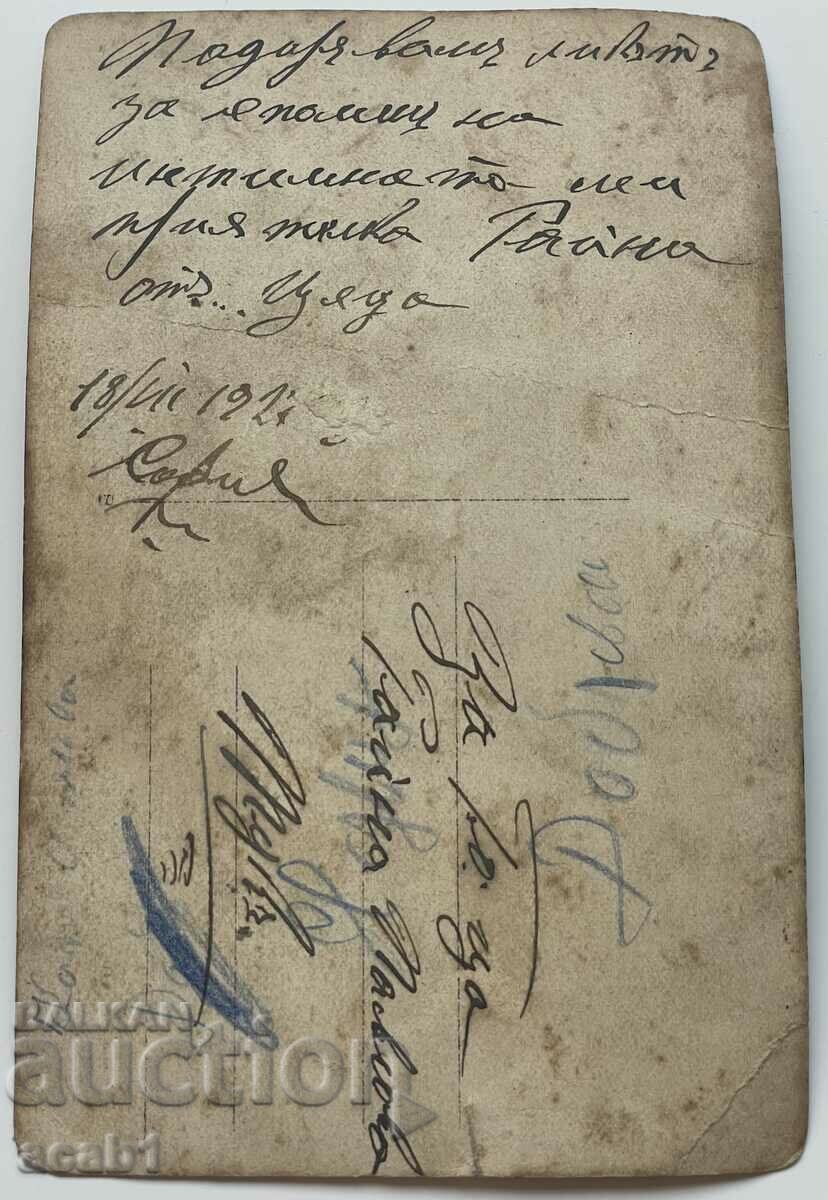 Подарявамъ ликътъ
за споменъ на
интимната ми
приятелка Райна
отъ... Цяца
18/III 192
София
За Г-ца
Райна Павлова
Тукъ.
Добрева
BALKAN
auction
acab1